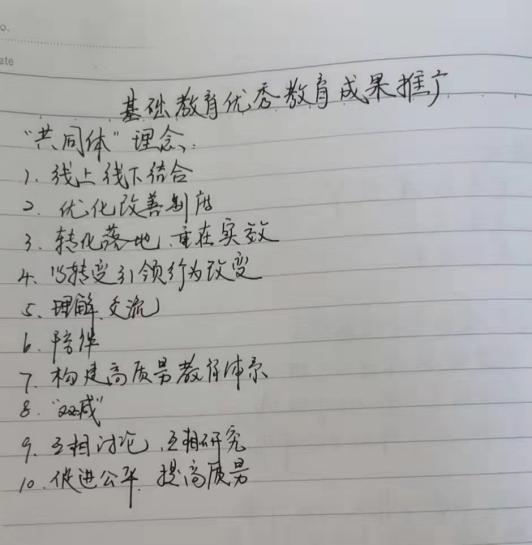 o.
ate
基础教育优秀教育成果推广
"共同体"理念:
1. 线上线下结合
2. 优化改善制度
3. 转化落地、重在实效
4. 以转变引领行为改变
5. 理解、交流
6. 陪伴
7. 构建高质量教育体系
8. "双减"
9. 互相讨论、互相研究
10. 促进公平、提高质量